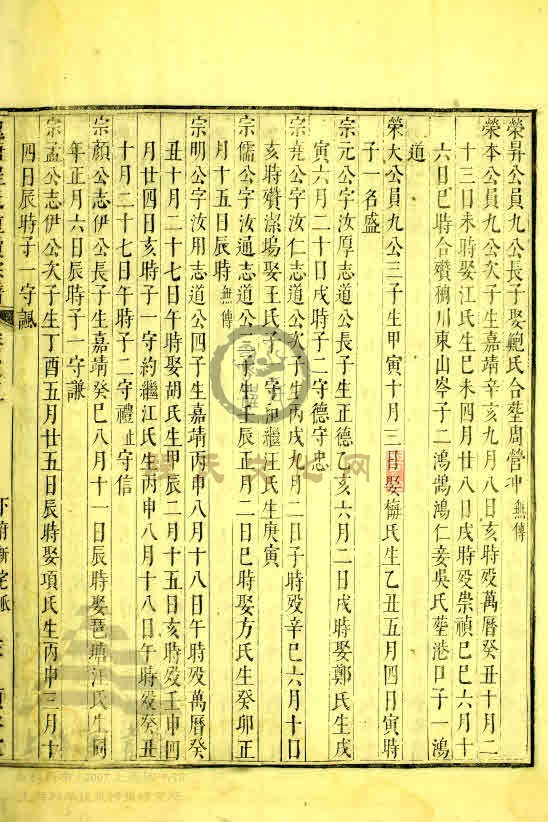 榮昇公員九公長子娶鮑氏合塟周營冲 無傳
榮本公員九公次子生嘉靖辛亥九月八日亥時歿萬曆癸丑十月二
十三日未時娶江氏生巳未四月廿八日戌時歿崇禎巳巳六月十
六日巳時合殯 川東山岑子二鴻鵠鴻仁妾吳氏塟港口子一鴻
通
榮大公員九公三子生甲寅十月三日娶 氏生乙丑五月四日寅時
子一名盛
宗元公字汝厚志道公長子生正德乙亥六月二日戌時娶鄭氏生戌
寅六月二十日戌時子二守德守忠
宗堯公字汝仁志道公次子生丙戌九月二日子時歿辛巳六月十口
亥時 塢娶王氏子一守 繼汪氏生庚寅
宗儒公字汝通志道公三子生壬辰正月二日巳時娶方氏生癸卯正
月十五日辰時 無傳
宗明公字汝用志道公四子生嘉靖丙申八月十八日午時歿萬曆癸
丑十月二十七日午時娶胡氏生甲辰二月十五日亥時歿壬申四
月廿四日亥時子一守約繼江氏生丙申八月十八日午時歿癸丑
十月二十七日午時子二守禮 止 守信
宗顏公志伊公長子生嘉靖癸巳八月十一日辰時娶琶塘汪氏生同
年正月六日辰時子一守謙
宗孟公志伊公次子生丁酉五月廿五日辰時娶項氏生丙申三月十
四日辰時子一守諷